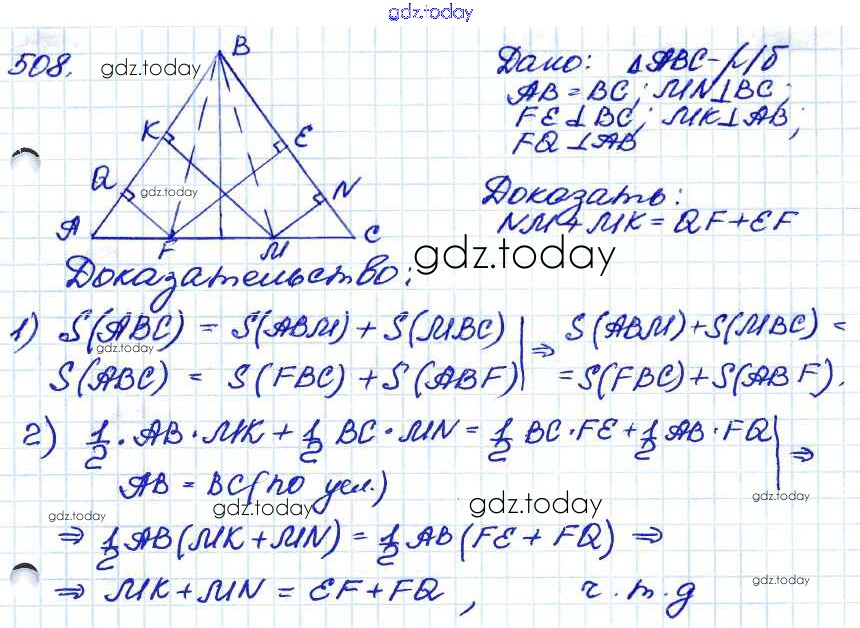 gdz.today
508.
gdz.today
B
K
E
Q
gdz.today
N
A
F
M
C
Дано: △ABC - р/б
AB = BC; MN⊥BC;
FE⊥BC; MK⊥AB;
FQ⊥AB
Доказать:
NM + MK = QF + EF
gdz.today
Доказательство:
1) S(ABC) = S(ABM) + S(MBC) | ⇒ S(ABM) + S(MBC) =
gdz.today
S(ABC) = S(FBC) + S(ABF) | = S(FBC) + S(ABF).
2) 1/2 · AB · MK + 1/2 BC · MN = 1/2 BC · FE + 1/2 AB · FQ | ⇒
AB = BC (по усл.)
gdz.today
gdz.today
gdz.today
gdz.today
⇒ 1/2 AB (MK + MN) = 1/2 AB (FE + FQ) ⇒
⇒ MK + MN = EF + FQ, ч.т.д
gdz.today